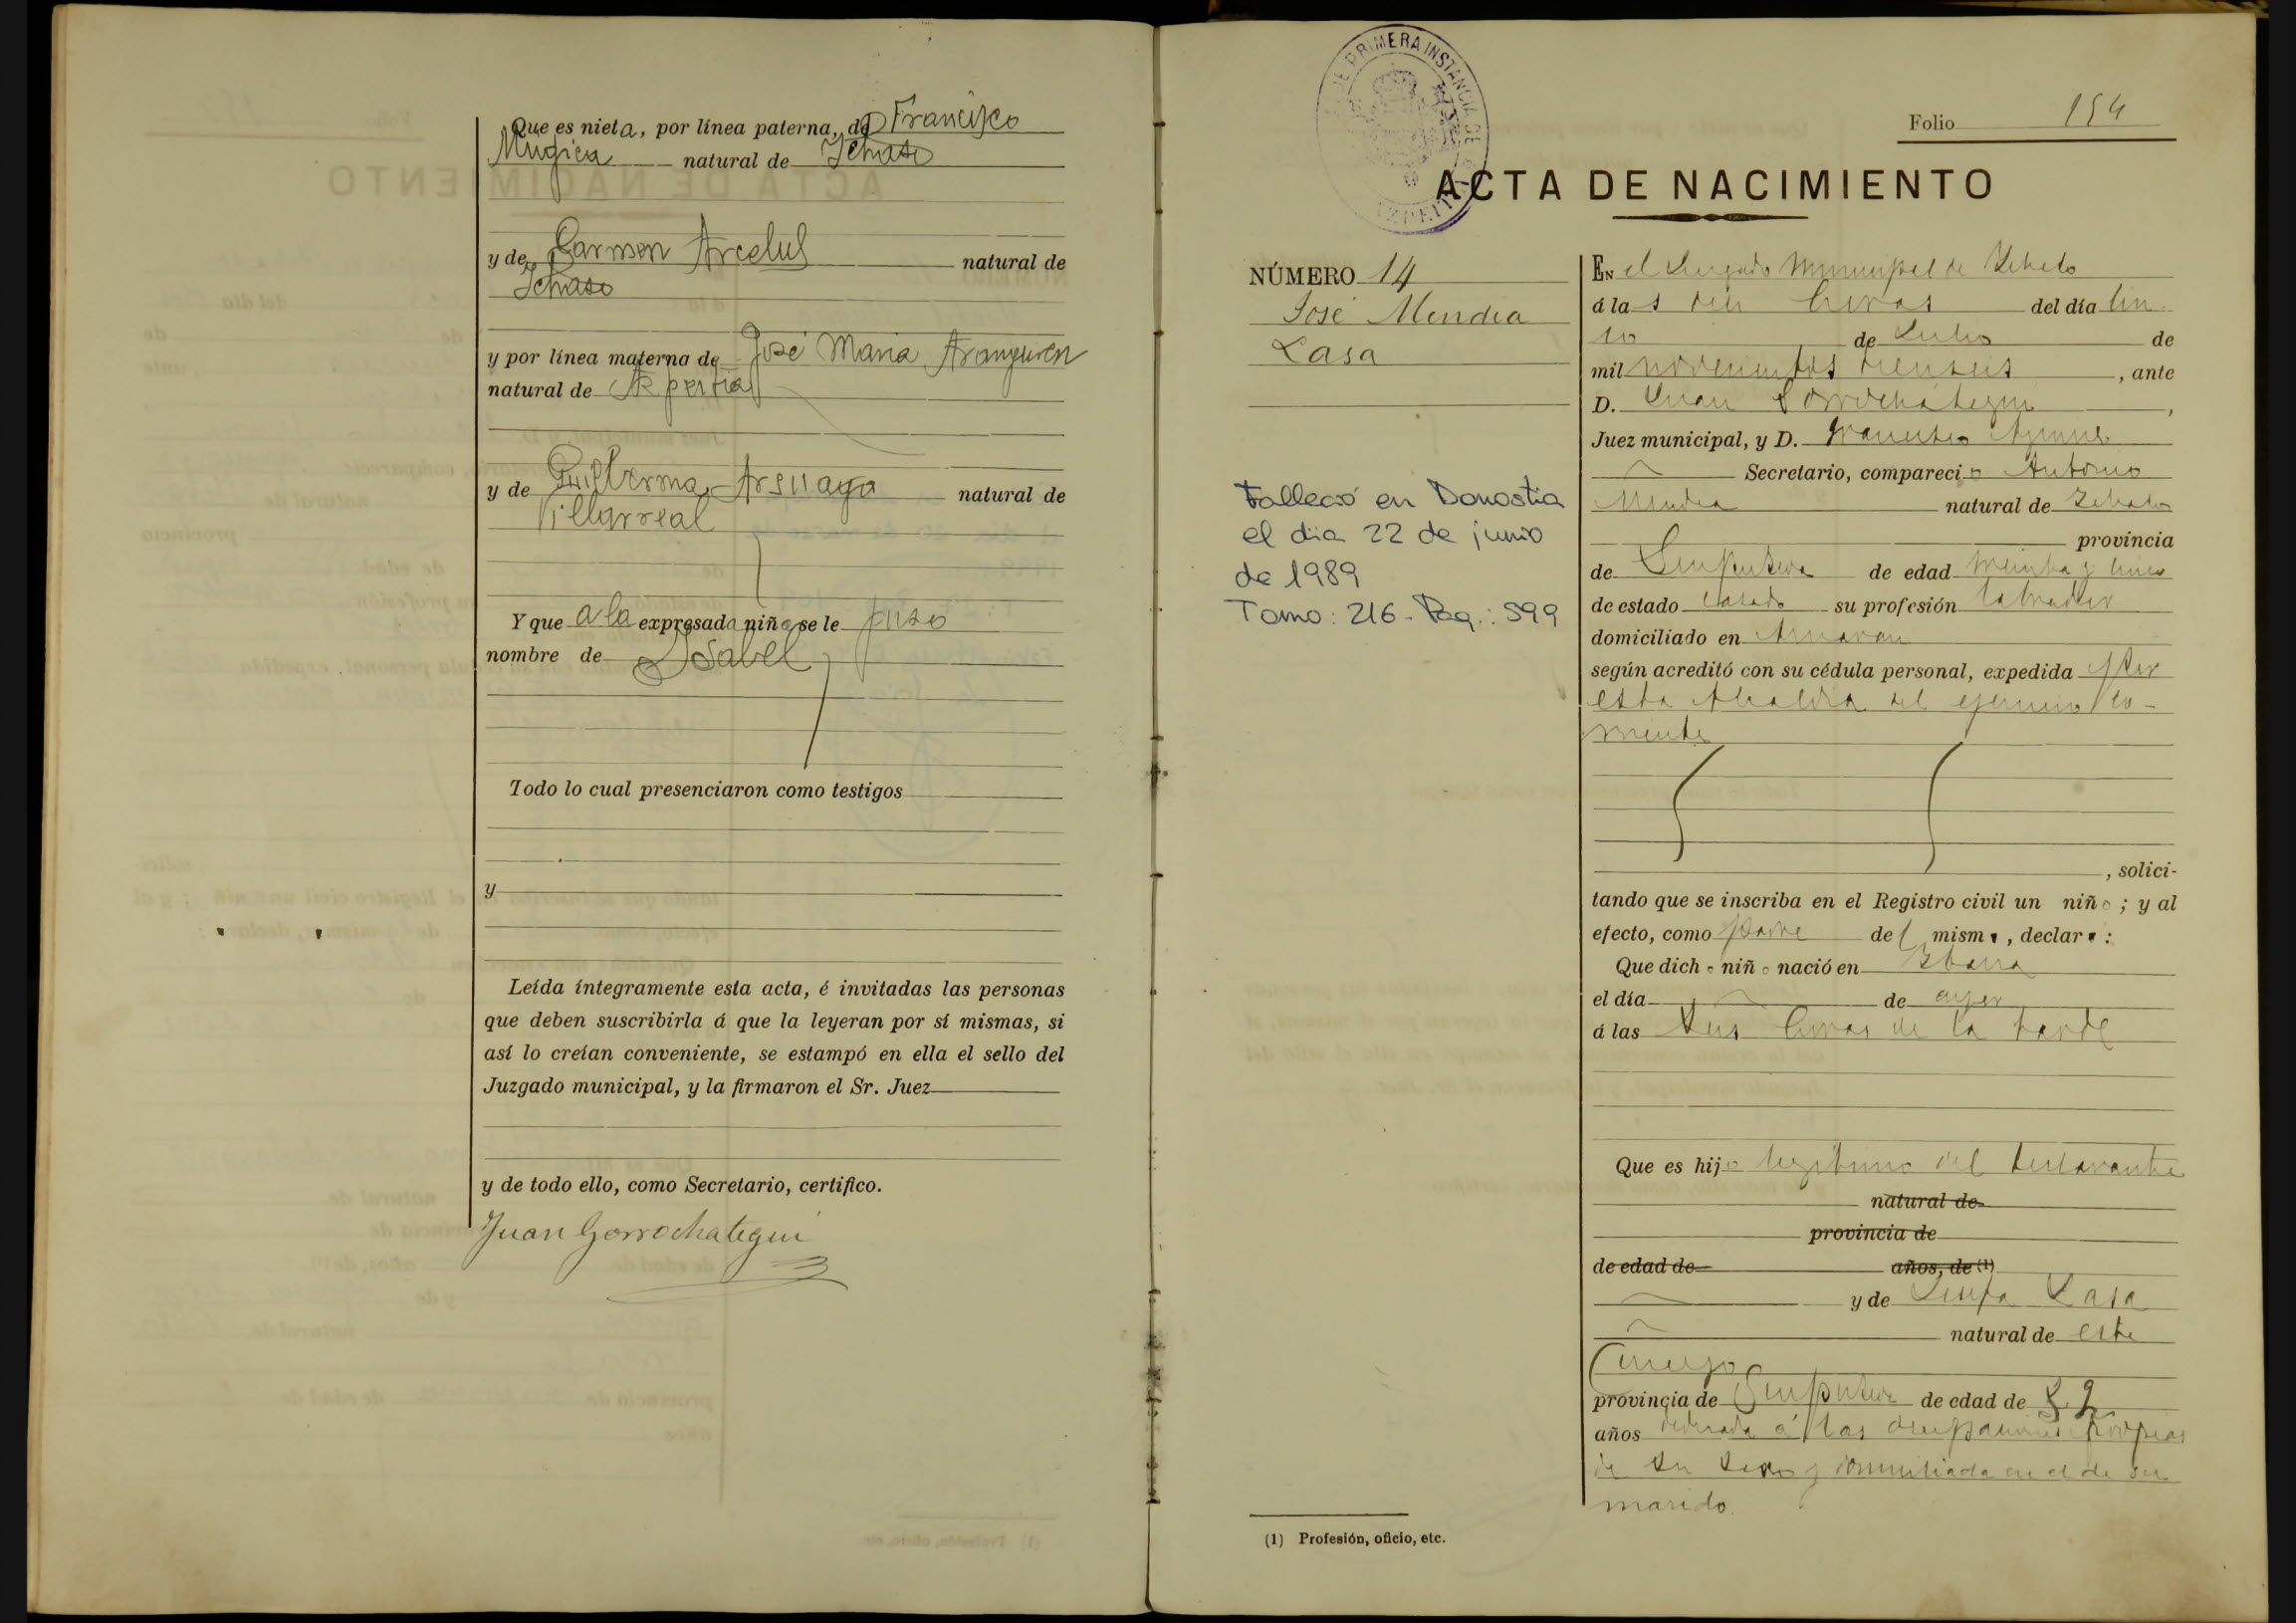 Que es nieta, por línea paterna, de D Francisco
Mugica natural de Ichaso
y de Carmen Arcelus natural de
Ichaso
y por línea materna de José Maria Aranguren
natural de Azpeitia
y de Guillerma Arsuaga natural de
Villarreal
Y que a la expresada niña se le puso
nombre de Isabel
Todo lo cual presenciaron como testigos
y
Leída íntegramente esta acta, é invitadas las personas
que deben suscribirla á que la leyeran por sí mismas, si
así lo creían conveniente, se estampó en ella el sello del
Juzgado municipal, y la firmaron el Sr. Juez
y de todo ello, como Secretario, certifico.
Juan Gorrochategui
DE PRIMERA INSTANCIA DE AZPEITIA
Folio 154
ACTA DE NACIMIENTO
NÚMERO 14
José Mendia
Lasa
Falleció en Donostia
el dia 22 de junio
de 1989
Tomo: 216 - Pag.: 599
EN el Juzgado Municipal de Ichaso
á las diez horas del día cin
co de Julio de
mil novecientos dieciseis, ante
D. Juan Gorrochategui,
Juez municipal, y D. Francisco
Secretario, compareció Antonio
Mendia natural de Ichaso
provincia
de Guipuzcoa de edad treinta y cinco
de estado casado su profesión labrador
domiciliado en
según acreditó con su cédula personal, expedida por
esta Alcaldia del ejercicio co-
rriente
, solici-
tando que se inscriba en el Registro civil un niño; y al
efecto, como padre del mismo, declara:
Que dicho niño nació en Ibarra
el día de ayer
á las seis horas de la tarde
Que es hijo legitimo del declarante
natural de
provincia de
de edad de años, de (1)
y de Josefa Lasa
natural de este
Concejo
provincia de Guipuzcoa de edad de 32
años dedicada á las ocupaciones propias
de su sexo y domiciliada en el de su
marido
(1) Profesión, oficio, etc.